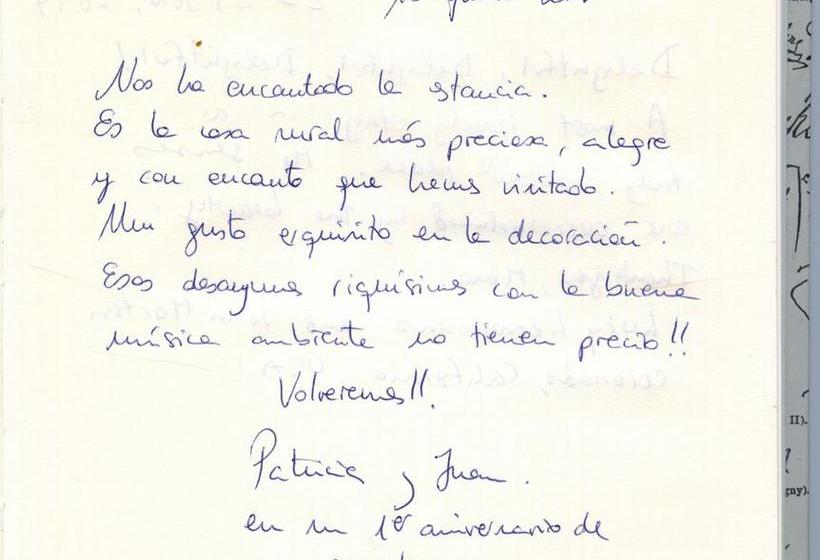 Nos ha encantado la estancia.
Es la casa rural más preciosa, alegre
y con encanto que hemos visitado.
Un gusto exquisito en la decoración.
Esos desayunos riquísimos con la buena
música ambiente no tienen precio!!
Volveremos!!.
Patricia y Juan.
en su 1er aniversario de
II).
gny).